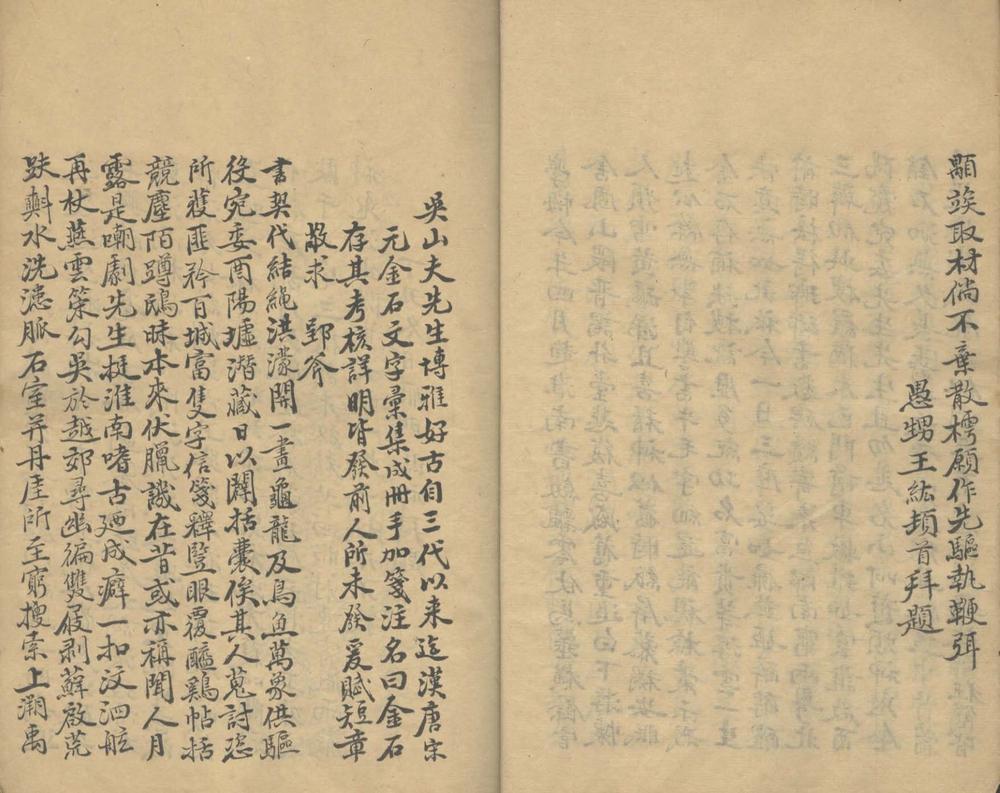 顒竢取材倘不棄散樗願作先驅執鞭弭
愚甥王紘頓首拜題
吳山夫先生博雅好古自三代以来迄漢唐宋
元金石文字彙集成冊手加箋注名曰金石
存其考核詳明皆發前人所未發爰賦短章
敬求　郢斧
書契代結繩洪濛開一畫龜龍及鳥魚萬象供驅
役宛委酉陽墟潛藏日以闢括囊俟其人蒐討恣
所獲匪矜百城富隻字信箋釋豎眼覆醯鷄帖括
競塵陌蹲鴟昧本來伏臘譏在昔或亦稱聞人月
露是嘲劇先生挺淮南嗜古廼成癖一扣汶泗舷
再杖燕雲策勾吳於越郊尋幽徧雙屐剥蘚啟荒
趺㪺水洗漶脈石室并丹厓所至窮搜索上溯禹